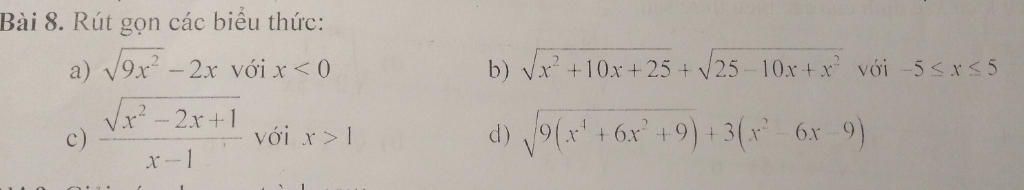 Bài 8. Rút gọn các biểu thức:
a) √(9x²) − 2x với x < 0
b) √(x² + 10x + 25) + √(25 − 10x + x²) với −5 ≤ x ≤ 5
c) √(x² − 2x + 1) / (x − 1) với x > 1
d) √(9(x⁴ + 6x² + 9)) + 3(x² − 6x − 9)